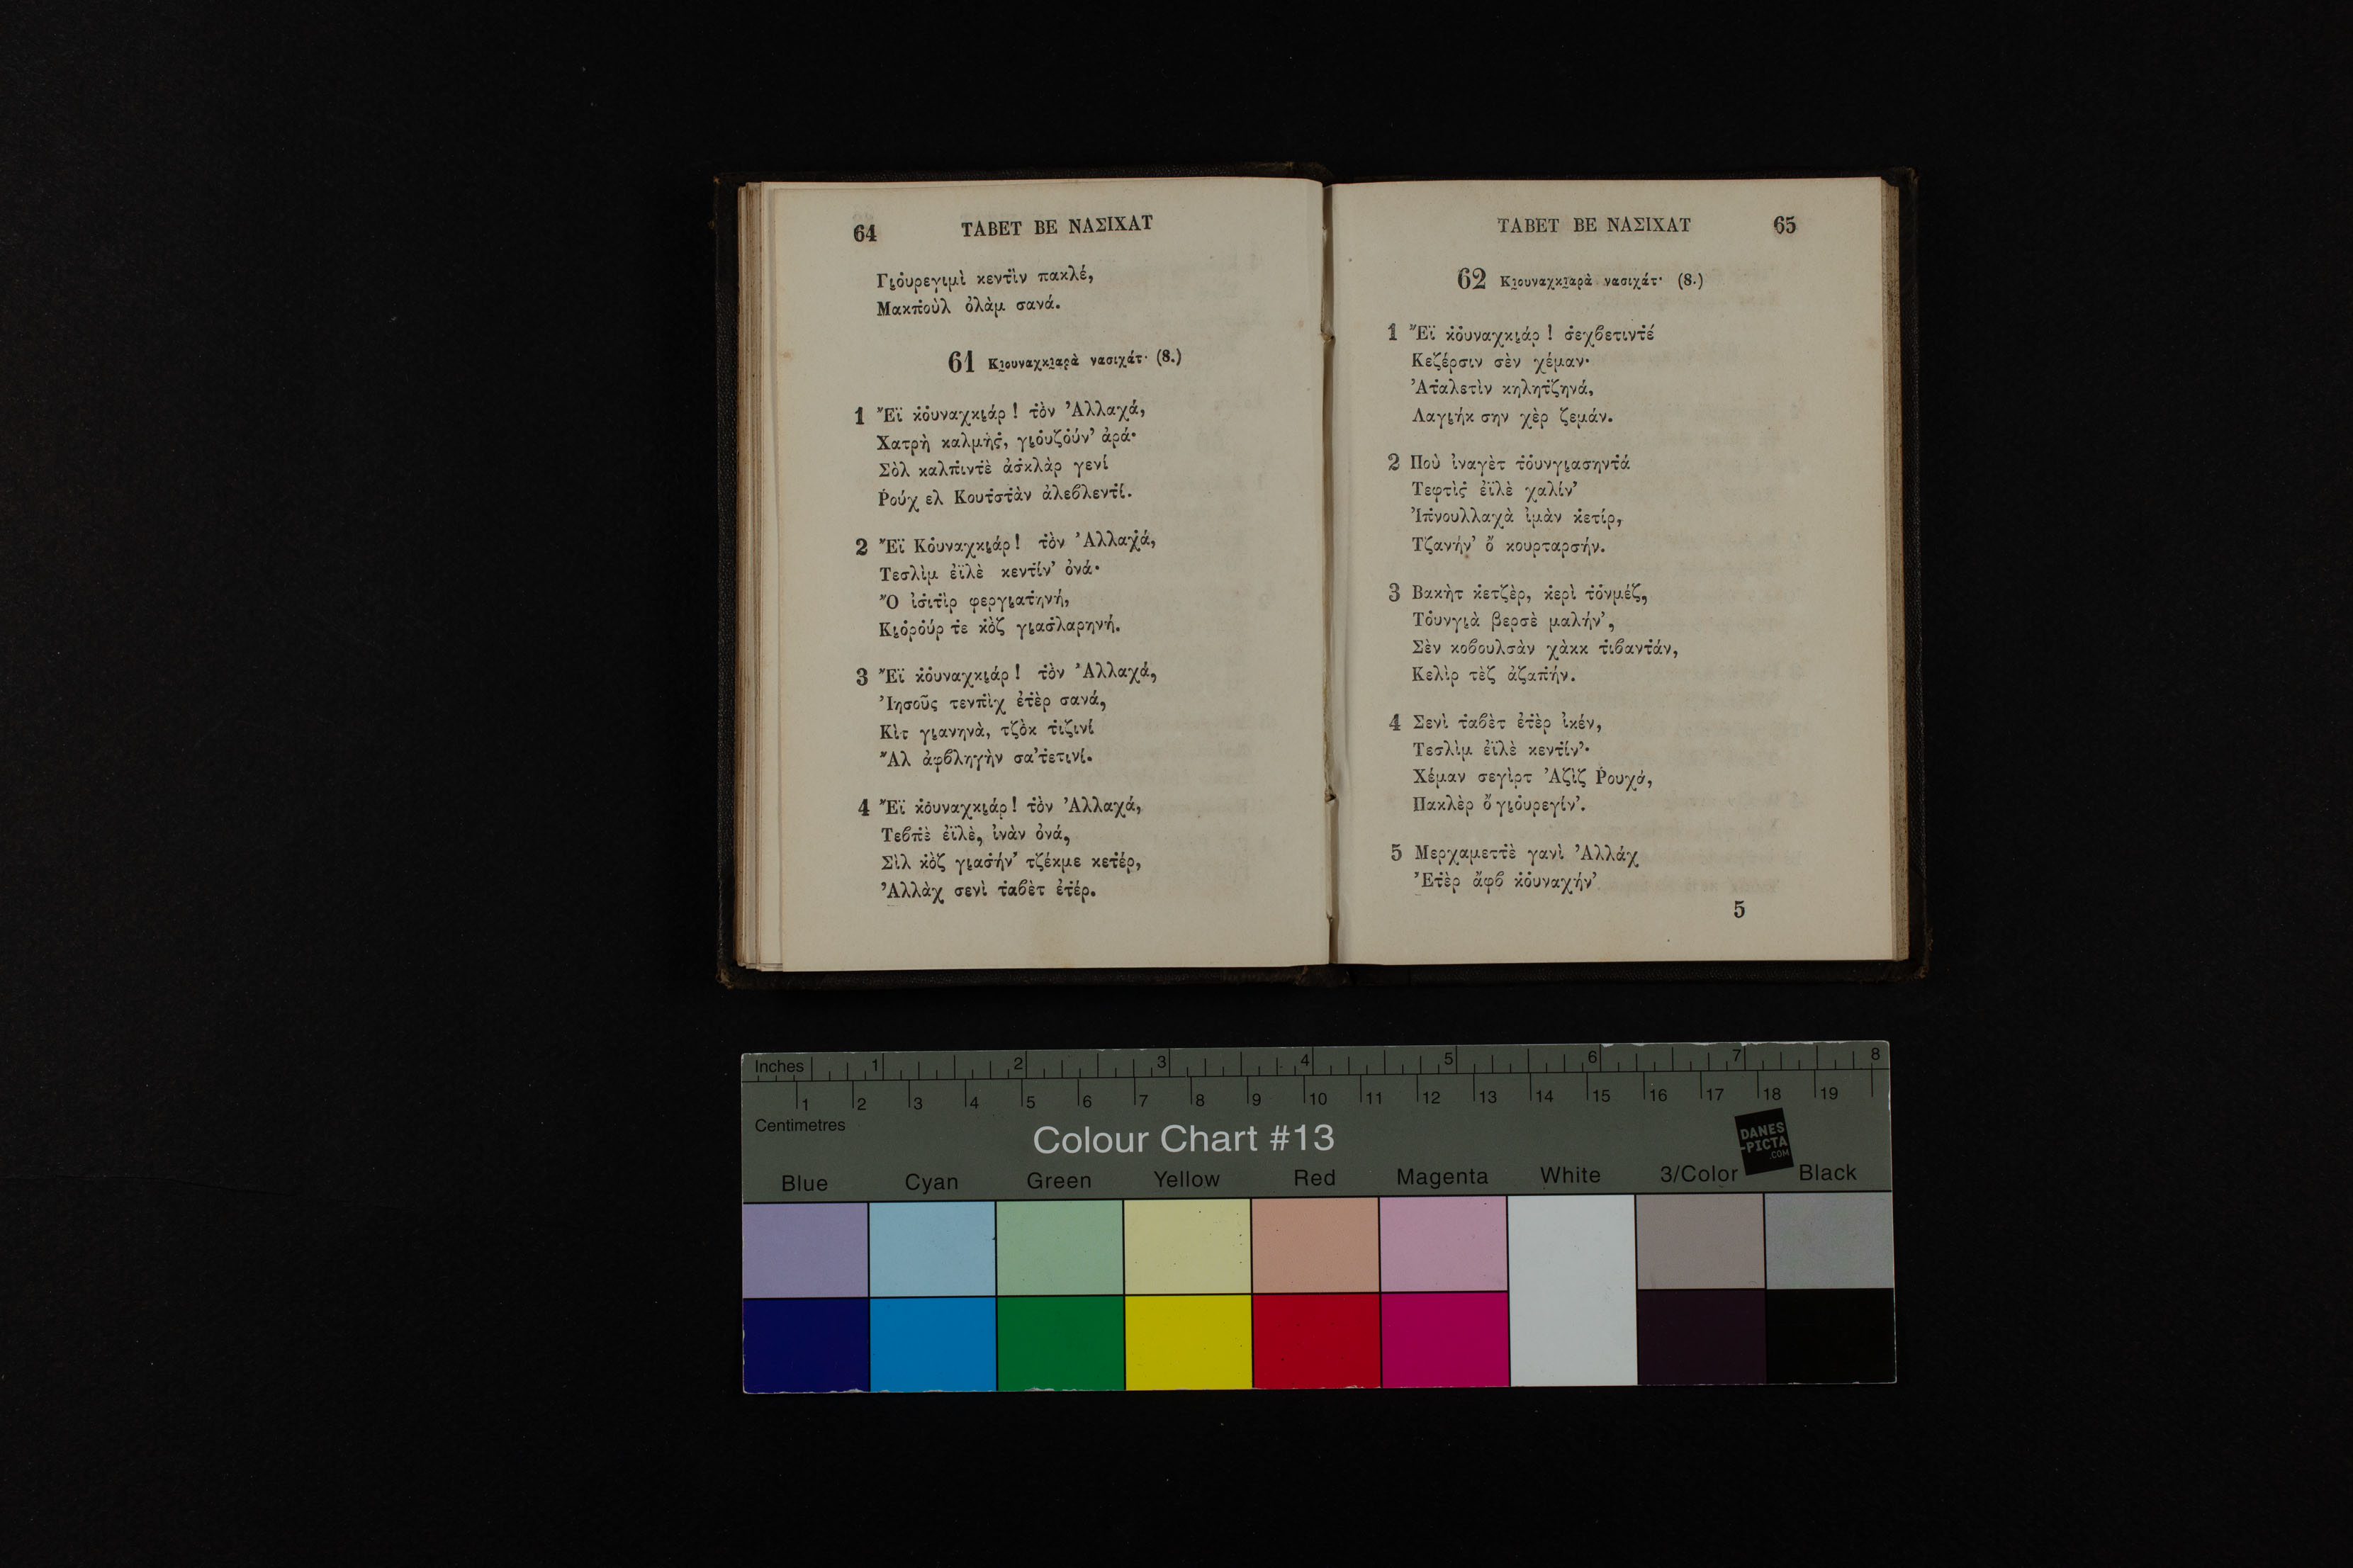 64 ΤΑΒΕΤ ΒΕ ΝΑΣΙΧΑΤ
Γι̱ȯυρεγιμὶ κεντ̇ὶν πακλέ,
Μακπ̇οὺλ ὀλὰμ σανά.
61 Κι̱ουναχκι̱αρὰ νασιχάτ· (8.)
1 Ἔϊ κ̇ȯυναχκι̱άρ! τ̇ὸν Ἀλλαχά,
Χατρὴ καλμής̇, γι̱ȯυζȯύν’ ἀρά·
Σὸλ καλπ̇ιντ̇ὲ ἀσ̇κλὰρ γενί
Ῥούχ ελ Κουτ̇στ̇ὰν ἀλεβλεντ̇ί.
2 Ἔϊ Κȯυναχκι̱άρ! τ̇ὸν Ἀλλαχά,
Τεσλὶμ ἐϊλὲ κεντ̇ίν’ ὀνά·
Ὅ ἰσ̇ιτ̇ὶρ φεργι̱ατ̇ηνή,
Κι̱ȯρȯύρ τ̇ε κ̇ὸζ γι̱ασ̇λαρηνή.
3 Ἔϊ κ̇ȯυναχκι̱άρ! τ̇ὸν Ἀλλαχά,
Ἰησοῦς τενπ̇ὶχ ἐτ̇ὲρ σανά,
Κὶτ γι̱ανηνὰ, τζὸκ τ̇ιζινί
Ἂλ ἀφβληγὴν σα’τ̇ετινί.
4 Ἔϊ κ̇ȯυναχκι̱άρ! τ̇ὸν Ἀλλαχά,
Τεβπ̇ὲ ἐϊλὲ, ἰνὰν ὀνά,
Σὶλ κ̇ὸζ γι̱ασ̇ήν’ τζέκμε κετ̇έρ,
Ἀλλὰχ σενὶ τ̇αβὲτ ἐτ̇έρ.
ΤΑΒΕΤ ΒΕ ΝΑΣΙΧΑΤ 65
62 Κι̱ουναχκι̱αρὰ νασιχάτ· (8.)
1 Ἔϊ κ̇ȯυναχκι̱άρ! σ̇εχβετιντ̇έ
Κεζέρσιν σὲν χέμαν·
Ἀτ̇αλετὶν κηλητ̇ζηνά,
Λαγι̱ήκ σην χὲρ ζεμάν.
2 Ποὺ ἰναγὲτ τ̇ȯυνγι̱ασηντ̇ά
Τεφτὶς̇ ἐϊλὲ χαλίν’
Ἰπ̇νουλλαχὰ ἰμὰν κ̇ετίρ,
Τζανήν’ ὂ κουρταρσήν.
3 Βακὴτ κ̇ετζὲρ, κ̇ερὶ τ̇ȯνμέζ,
Τ̇ȯυνγι̱ὰ βερσὲ μαλήν’,
Σὲν κοβουλσὰν χὰκκ τ̇ιβαντ̇άν,
Κελὶρ τὲζ ἀζαπ̇ήν.
4 Σενὶ τ̇αβὲτ ἐτ̇ὲρ ἰκέν,
Τεσλὶμ ἐϊλὲ κεντ̇ίν’·
Χέμαν σεγὶρτ Ἀζὶζ Ῥουχά,
Πακλὲρ ὂ γι̱ȯυρεγίν’.
5 Μερχαμεττ̇ὲ γανὶ Ἀλλάχ
Ἐτ̇ὲρ ἄφβ κ̇ȯυναχήν’
5
Inches 1 2 3 4 5 6 7 8
1 2 3 4 5 6 7 8 9 10 11 12 13 14 15 16 17 18 19
Centimetres
Colour Chart #13
DANES
-PICTA
.COM
Blue Cyan Green Yellow Red Magenta White 3/Color Black